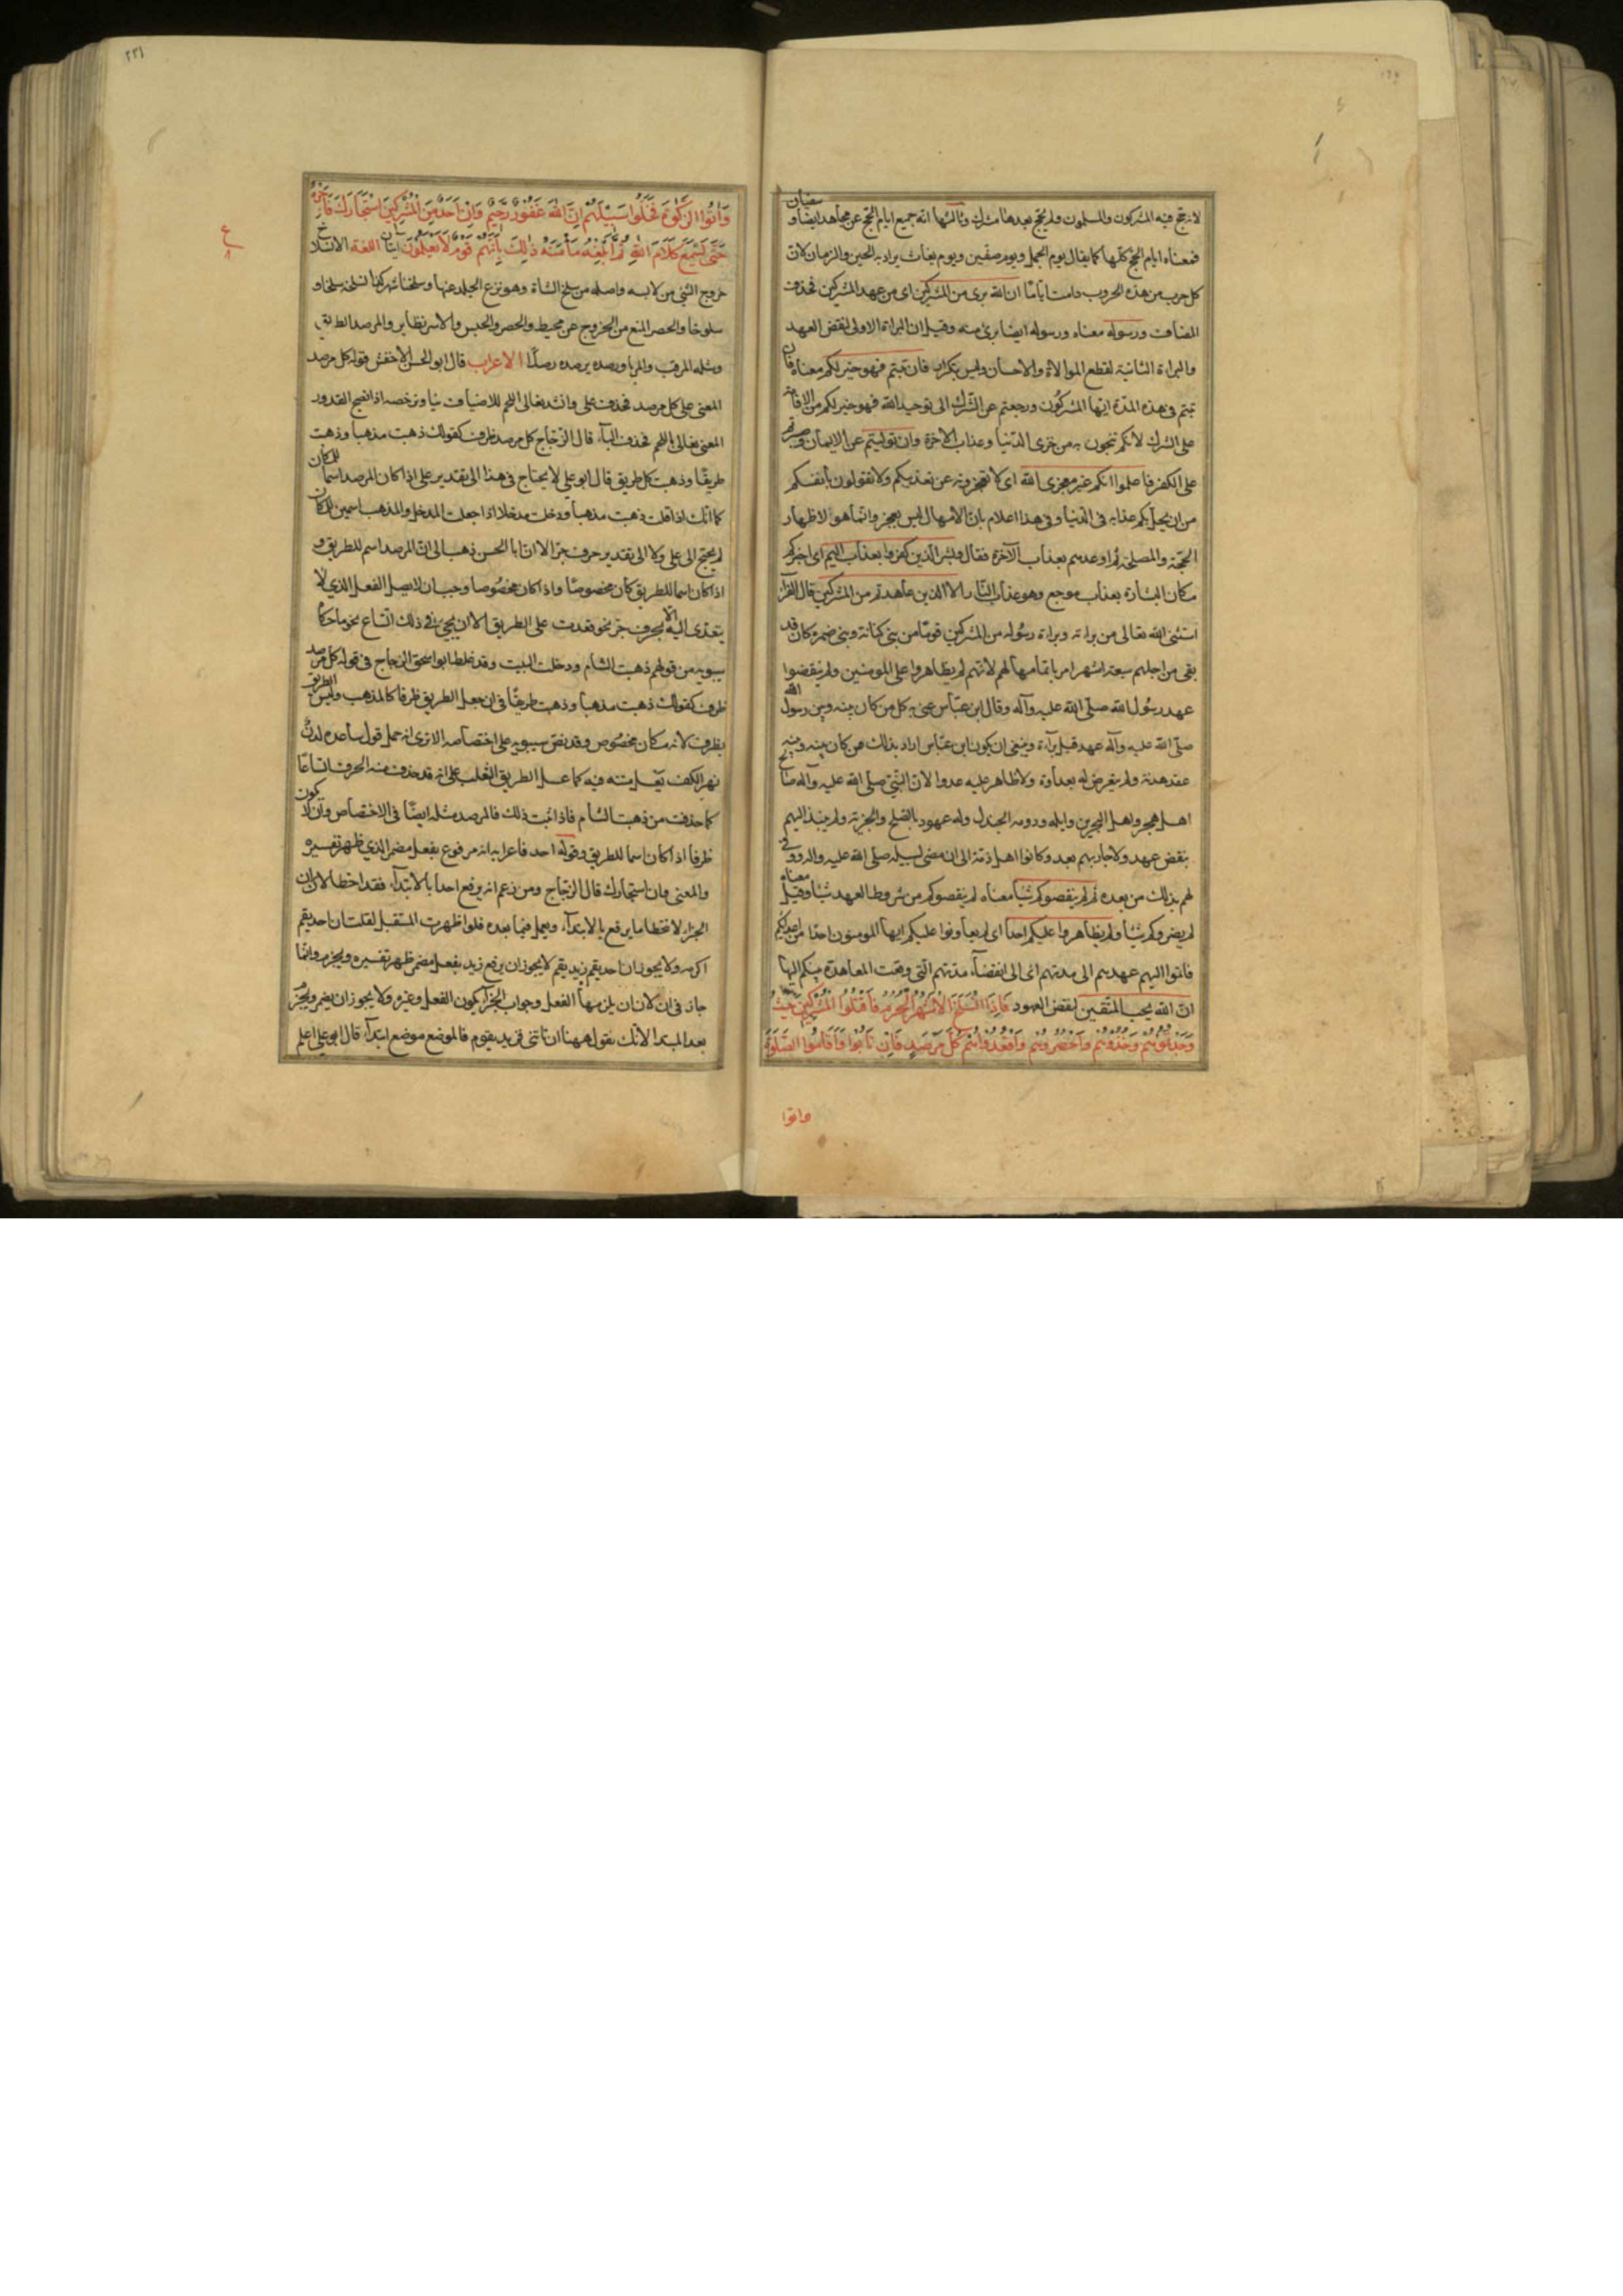 لانه حج فيه المشركون والمسلمون ولم يحج بعدها مشرك وثالثها انه جميع ايام الحج عن مجاهد ايضا وسفيان
فمعناه ايام الحج كلها كما يقال يوم الجمل ويوم صفين ويوم بغاث يراد به الحين والزمان لان
كل حرب من هذه الحروب دامت اياما ان الله برى من المشركين اى من عهد المشركين فحذف
المضاف ورسوله معناه ورسوله ايضا برئ منه وقيل ان البراة الاولى لنقض العهد
والبراءة الثانية لقطع الموالاة والاحسان وليس بتكرار فان تبتم فهو خير لكم معناه فان
تبتم فى هذه المدة ايها المشركون ورجعتم عن الشرك الى توحيد الله فهو خير لكم من الاقامة
على الشرك لانكم تنجون به من خزى الدنيا وعذاب الاخرة وان توليتم عن الايمان وصرتم
على الكفر فاعلموا انكم غير معجزى الله اى لا تعجزونه عن تعذيبكم ولا تفوتون بانفسكم
من ان يحل بكم عذابه فى الدنيا وفى هذا اعلام بان الامهال ليس بعجز وانما هو لاظهار
الحجة والمصلحة ثم اوعدهم بعذاب الآخرة فقال وبشر الذين كفروا بعذاب اليم اى اخبرهم
مكان البشارة بعذاب موجع وهو عذاب النار الا الذين عاهدتم من المشركين قال الفراء
استثنى الله تعالى من براته وبراءة رسوله من المشركين قوما من بنى كنانة وبنى ضمرة كان قد
بقى من اجلهم سبعة اشهر امر باتمامها لهم لانهم لم يظاهروا على المومنين ولم ينقضوا
عهد رسول الله صلى الله عليه وآله وقال ابن عباس عنى به كل من كان بينه وبين رسول الله
صلى الله عليه وآله عهد قبل براءة وينبغى ان يكون ابن عباس اراد بذلك من كان بينه وبينه
عقد هدنة ولم يتعرض له بعداوة ولا ظاهر عليه عدوا لان النبى صلى الله عليه وآله صالح
اهل هجر واهل البحرين وايلة ودومة الجندل وله عهود بالصلح والجزية ولم ينبذ اليهم
بنقض عهد ولا حاربهم بعد وكانوا اهل ذمة الى ان مضى لسبيله صلى الله عليه واله ووفى
لهم بذلك من بعده ثم لم ينقصوكم شيئا معناه لم ينقصوكم من شروط العهد شيئا وقيل معناه
لم يضروكم شيئا ولم يظاهروا عليكم احدا اى لم يعاونوا عليكم ايها المومنون احدا من اعدائكم
فاتموا اليهم عهدهم الى مدتهم اى الى انقضاء مدتهم التى وقعت المعاهدة بينكم اليها
ان الله يحب المتقين لنقض العهود فَاِذَا انْسَلَخَ الْاَشْهُرُ الْحُرُمُ فَاقْتُلُوا الْمُشْرِكِينَ حَيْثُ
وَجَدْتُمُوهُمْ وَخُذُوهُمْ وَاحْصُرُوهُمْ وَاقْعُدُوا لَهُمْ كُلَّ مَرْصَدٍ فَاِنْ تَابُوا وَاَقَامُوا الصَّلَوةَ
واتوا
٢٢١
وَاٰتَوُا الزَّكَوٰةَ فَخَلُّوا سَبِيلَهُمْ اِنَّ اللهَ غَفُورٌ رَحِيمٌ وَاِنْ اَحَدٌ مِنَ الْمُشْرِكِينَ اسْتَجَارَكَ فَاَجِرْهُ
حَتَّى يَسْمَعَ كَلَامَ اللهِ ثُمَّ اَبْلِغْهُ مَأْمَنَهُ ذٰلِكَ بِاَنَّهُمْ قَوْمٌ لَا يَعْلَمُونَ ايتان اللغة الانسلاخ
خروج الشئ من لابسه واصله من سلخ الشاة وهو نزع الجلد عنها وسلخنا شهر كذا نسلخه سلخا و
سلوخا والحصر المنع من الخروج عن محيط والحصر والحبس والاسر نظاير والمرصد الطريق
ومثله المرقب والمربا ورصده يرصده رصدا الاعراب قال ابو الحسن الاخفش قوله كل مرصد
المعنى على كل مرصد فحذف على وانشد نغالى اللحم للاضياف نيا ونرخصه اذا نضج القدور
المعنى نغالى باللحم فحذف الباء قال الزجاج كل مرصد ظرف كقولك ذهبت مذهبا وذهبت
طريقا وذهبت كل طريق قال ابو على لا يحتاج فى هذا الى تقدير على اذا كان المرصد اسما للمكان
كما انك اذا قلت ذهبت مذهبا ودخلت مدخلا اذا جعلت المدخل والمذهب اسمين للمكان
لم يحتج الى على ولا الى تقدير حرف جر الا ان ابا الحسن ذهب الى ان المرصد اسم للطريق و
اذا كان اسما للطريق كان مخصوصا واذا كان مخصوصا وجب ان لا يصل الفعل الذى لا
يتعدى اليه الا بحرف جر نحو قعدت على الطريق الا ان يجئ فى ذلك اتساع نحو ما حكاه
سيبويه من قولهم ذهبت الشام ودخلت البيت وقد غلط ابو اسحق الزجاج فى قوله كل مرصد
ظرف كقولك ذهبت مذهبا وذهبت طريقا فى ان جعل الطريق ظرفا كالمذهب وليس الطريق
بظرف لانه مكان مخصوص وقد نص سيبويه على اختصاصه الا ترى انه حمل قول ساعدة لدن
بهز الكف يعسل متنه فيه كما عسل الطريق الثعلب على انه قد حذف منه الحرف اتساعا
كما حذفت من ذهبت الشام فاذا ثبت ذلك فالمرصد مثله ايضا فى الاختصاص وان لا يكون
ظرفا اذا كان اسما للطريق وقوله احد فاعرابه انه مرفوع بفعل مضمر الذى ظهر تفسيره
والمعنى وان استجارك قال الزجاج ومن زعم انه يرفع احدا بالابتداء فقد اخطا لان ان
الجزاء لا تتخطا ما يرفع بالابتداء ويعمل فيما بعده فلو اظهرت المستقبل لقلت ان احد يقم
اكرمه ولا يجوز ان احد يقم زيد يقم لا يجوز ان يرفع زيد بفعل مضمر ظهر تفسيره ويجزم وانما
جاز فى ان لان ان يلزمها الفعل وجواب الجزاء يكون الفعل وغيره ولا يجوز ان يضمر ويجزم
بعد المبتدا لانك تقول ههنا ان تاتنى فزيد يقوم فالموضع موضع ابتداء قال ابو على اعلم